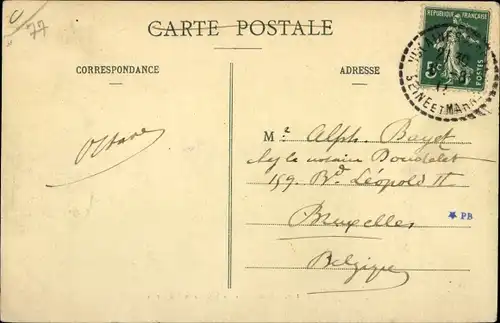 77
CARTE POSTALE
REPUBLIQUE FRANÇAISE
5c
POSTES
SEINE ET MARNE
CORRESPONDANCE
ADRESSE
Octave
Mr Alph. Bayet
le notaire Dondelet
159 Bd Léopold II
Bruxelles
PB
Belgique